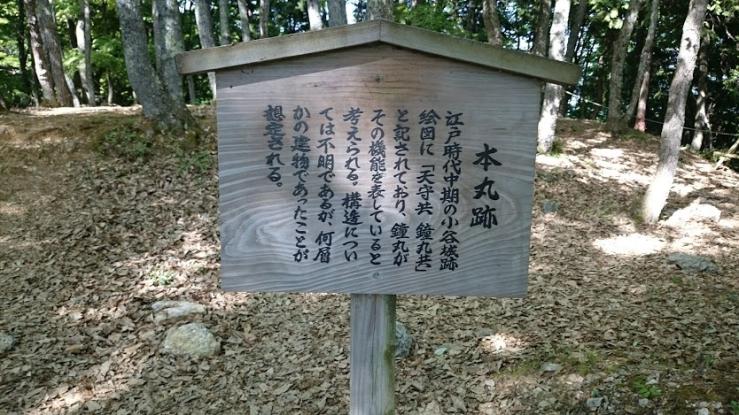 本丸跡
江戸時代中期の小谷城跡
絵図に「天守共 鐘丸共」
と記されており、鐘丸が
その機能を表していると
考えられる。構造につい
ては不明であるが、何層
かの建物であったことが
想定される。